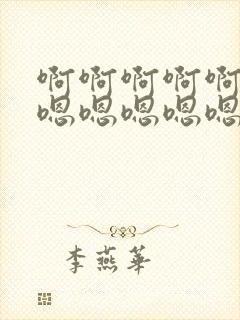 啊啊啊啊啊
嗯嗯嗯嗯嗯
李燕华